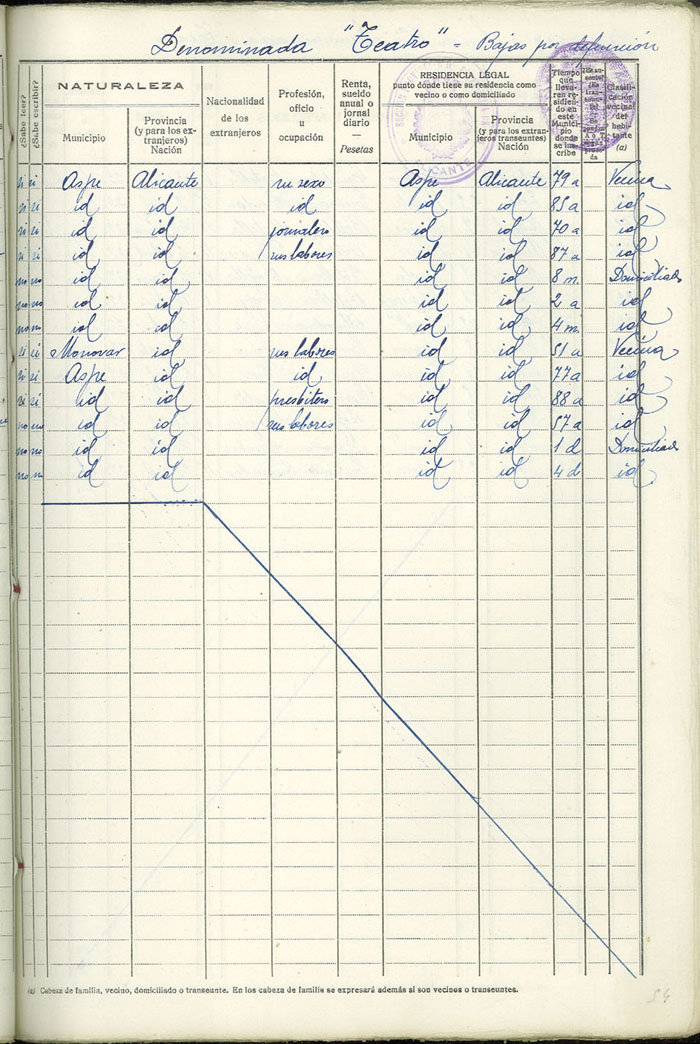 Denominada "Teatro" = Bajas por defunción
¿Sabe leer?
¿Sabe escribir?
NATURALEZA
Municipio
Provincia (y para los extranjeros) Nación
Nacionalidad de los extranjeros
Profesión, oficio u ocupación
Renta, sueldo anual o jornal diario — Pesetas
RESIDENCIA LEGAL
punto donde tiene su residencia como vecino o como domiciliado
Municipio
Provincia (y para los extranjeros transeuntes) Nación
Tiempo que llevaren residiendo en este Municipio donde se inscribe
Clasificación vecinal del habitante (a)
si si Aspe Alicante su sexo Aspe Alicante 79 a Vecina
si si id id id id id 85 a id
si si id id jornalero id id 70 a id
si si id id sus labores id id 87 a id
no no id id id id 8 m. Domiciliado
no no id id id id 2 a id
no no id id id id 4 m. id
si si Monovar id sus labores id id 51 a Vecina
si si Aspe id id id id 77 a id
si si id id presbitero id id 88 a id
no no id id sus labores id id 57 a id
no no id id id id 1 d Domiciliado
no no id id id id 4 d id
(a) Cabeza de familia, vecino, domiciliado o transeunte. En los cabeza de familia se expresará además si son vecinos o transeuntes.
54